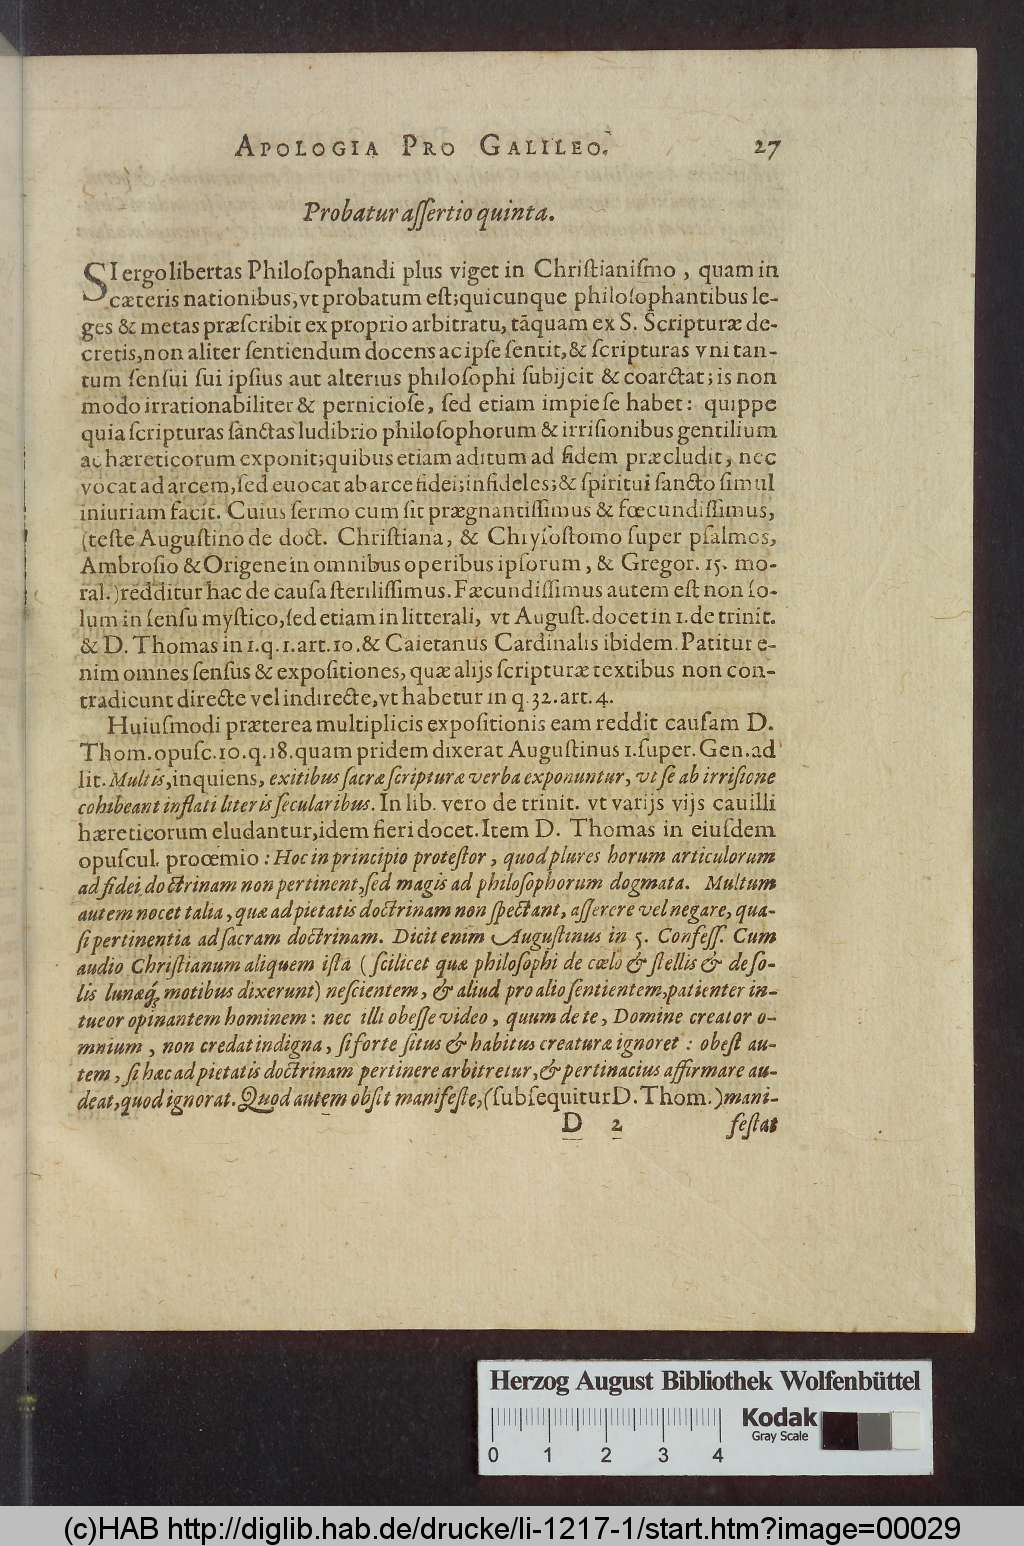 APOLOGIA PRO GALILEO. 27
Probatur aſſertio quinta.
SI ergo libertas Philoſophandi plus viget in Chriſtianiſmo, quam in
cæteris nationibus, vt probatum eſt; quicunque philoſophantibus le-
ges & metas præſcribit ex proprio arbitratu, tãquam ex S. Scripturæ de-
cretis, non aliter ſentiendum docens ac ipſe ſentit, & ſcripturas vni tan-
tum ſenſui ſui ipſius aut alterius philoſophi ſubijcit & coarctat; is non
modo irrationabiliter & pernicioſe, ſed etiam impie ſe habet: quippe
quia ſcripturas ſanctas ludibrio philoſophorum & irriſionibus gentilium
ac hæreticorum exponit; quibus etiam aditum ad fidem præcludit, nec
vocat ad arcem, ſed euocat ab arce fidei; infideles; & ſpiritui ſancto ſimul
iniuriam facit. Cuius ſermo cum ſit prægnantiſſimus & fœcundiſſimus,
(teſte Auguſtino de doct. Chriſtiana, & Chryſoſtomo ſuper pſalmos,
Ambroſio & Origene in omnibus operibus ipſorum, & Gregor. 15. mo-
ral.) redditur hac de cauſa ſteriliſſimus. Fæcundiſſimus autem eſt non ſo-
lum in ſenſu myſtico, ſed etiam in litterali, vt Auguſt. docet in 1. de trinit.
& D. Thomas in 1. q. 1. art. 10. & Caietanus Cardinalis ibidem. Patitur e-
nim omnes ſenſus & expoſitiones, quæ alijs ſcripturæ textibus non con-
tradicunt directe vel indirecte, vt habetur in q. 32. art. 4.
Huiuſmodi præterea multiplicis expoſitionis eam reddit cauſam D.
Thom. opuſc. 10. q. 18. quam pridem dixerat Auguſtinus 1. ſuper. Gen. ad
lit. Multis, inquiens, exitibus ſacræ ſcripturæ verba exponuntur, vt ſe ab irriſione
cohibeant inflati literis ſecularibus. In lib. vero de trinit. vt varijs vijs cauilli
hæreticorum eludantur, idem fieri docet. Item D. Thomas in eiuſdem
opuſcul. procœmio: Hoc in principio proteſtor, quod plures horum articulorum
ad fidei doctrinam non pertinent, ſed magis ad philoſophorum dogmata. Multum
autem nocet talia, quæ ad pietatis doctrinam non ſpectant, aſſerere vel negare, qua-
ſi pertinentia ad ſacram doctrinam. Dicit enim Auguſtinus in 5. Confeſſ. Cum
audio Chriſtianum aliquem iſta (ſcilicet quæ philoſophi de cœlo & ſtellis & de ſo-
lis lunæq́; motibus dixerunt) neſcientem, & aliud pro alio ſentientem, patienter in-
tueor opinantem hominem: nec illi obeſſe video, quum de te, Domine creator o-
mnium, non credat indigna, ſi forte ſitus & habitus creaturæ ignoret: obeſt au-
tem, ſi hæc ad pietatis doctrinam pertinere arbitretur, & pertinacius affirmare au-
deat, quod ignorat. Quod autem obſit manifeſte, (ſubſequitur D. Thom.) mani-
D 2 feſtat
Herzog August Bibliothek Wolfenbüttel
Kodak
Gray Scale
0 1 2 3 4
(c)HAB http://diglib.hab.de/drucke/li-1217-1/start.htm?image=00029